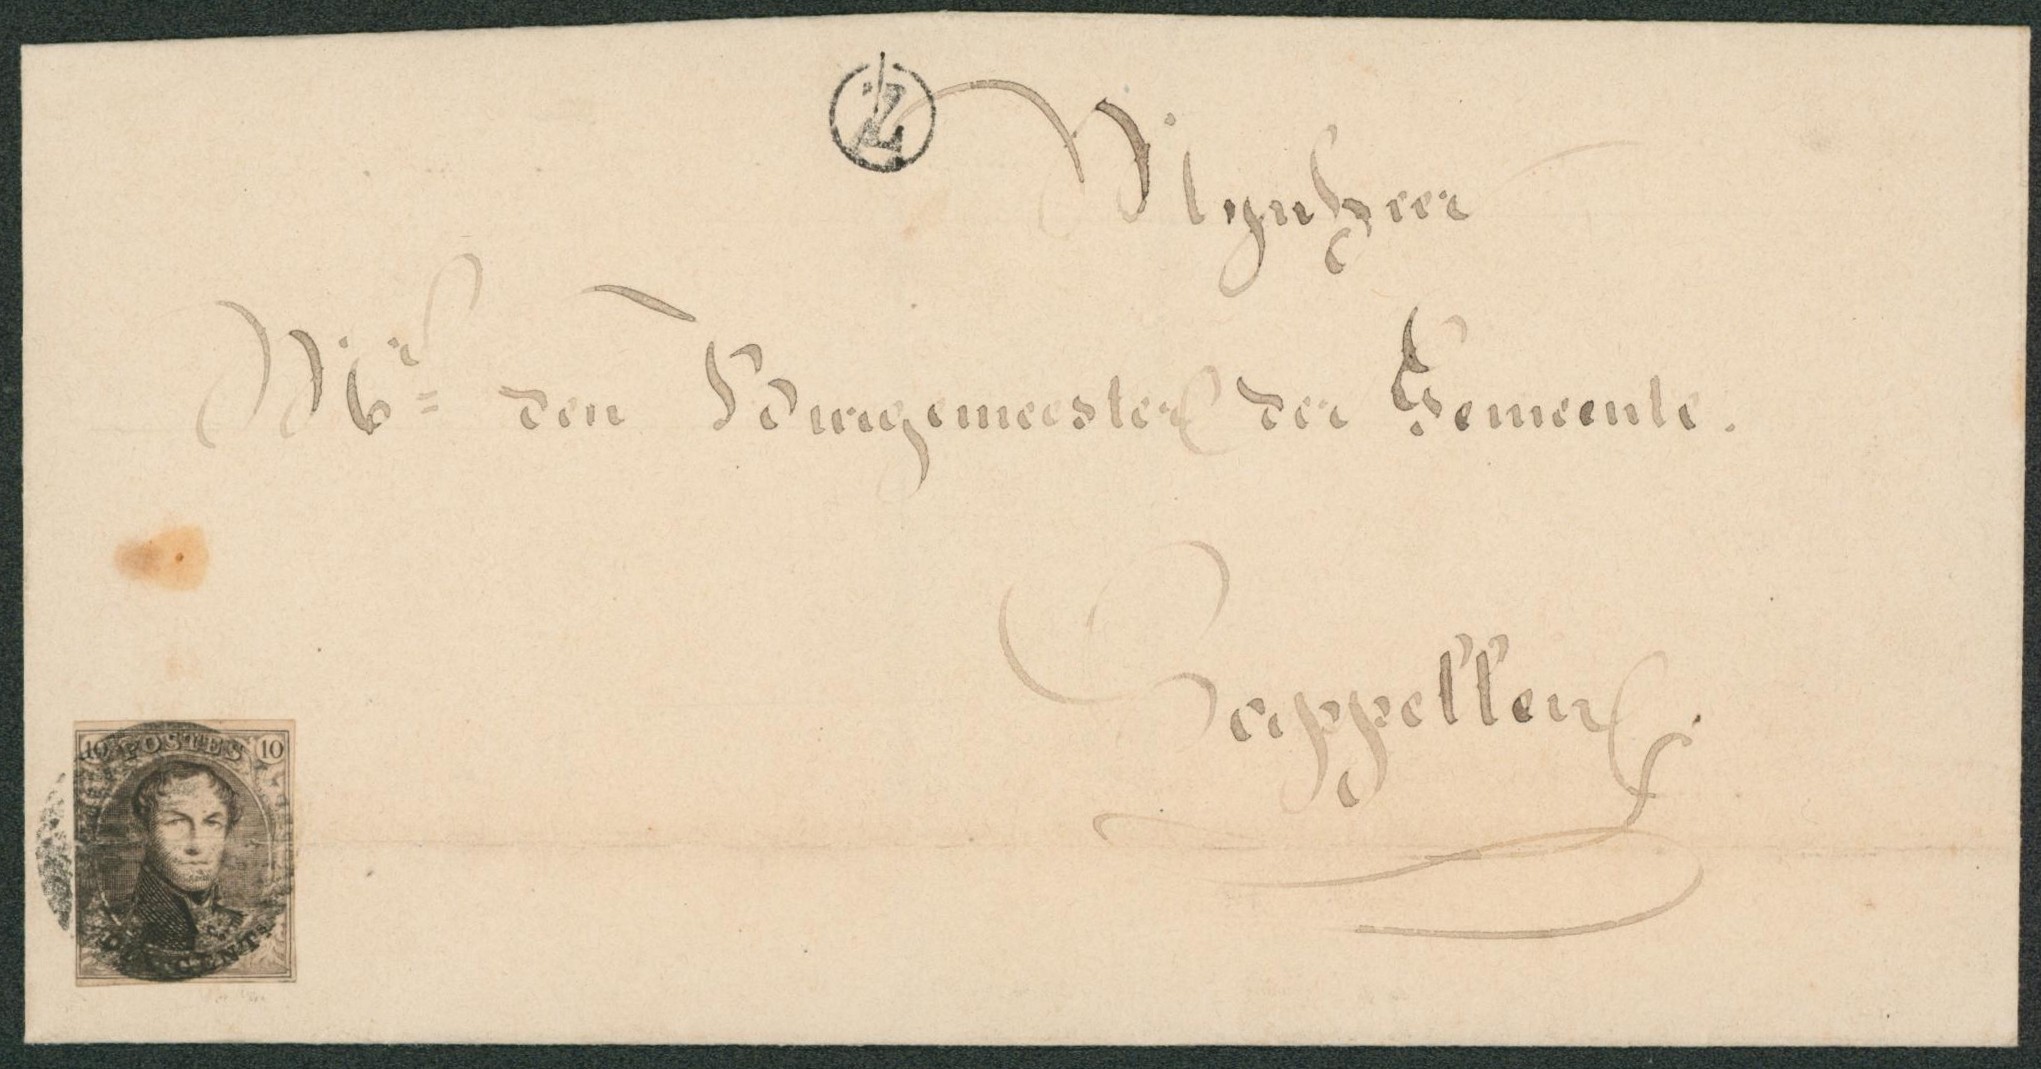 Mynheer
Mr= den Burgemeester der Gemeente.
Cappellen.
10 POSTES 10
DIX CENTS